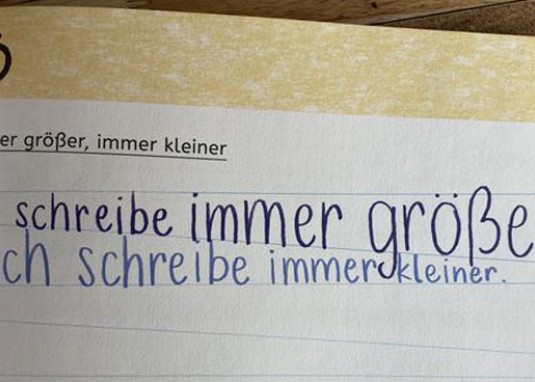 er größer, immer kleiner
schreibe immer größe
ch schreibe immer kleiner.